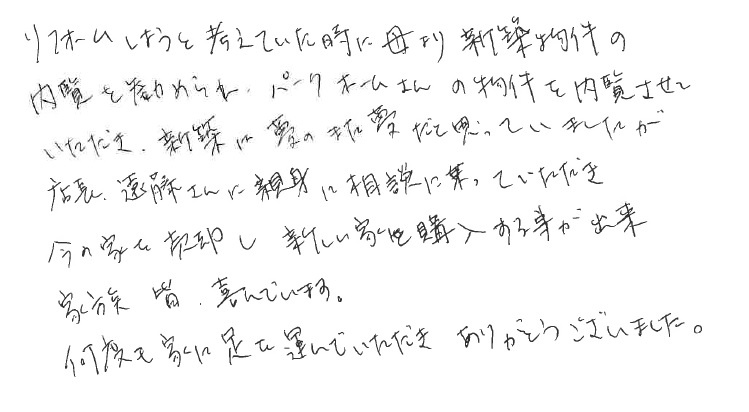 リフォームしようと考えていた時に母より新築物件の
内覧を勧められ、パークホームさんの物件を内覧させて
いただき、新築は夢のまた夢だと思っていましたが
店長、遠藤さんに親身に相談に乗っていただき
今の家を売却し新しい家を購入する事が出来
家族皆、喜んでいます。
何度も家に足を運んでいただきありがとうございました。